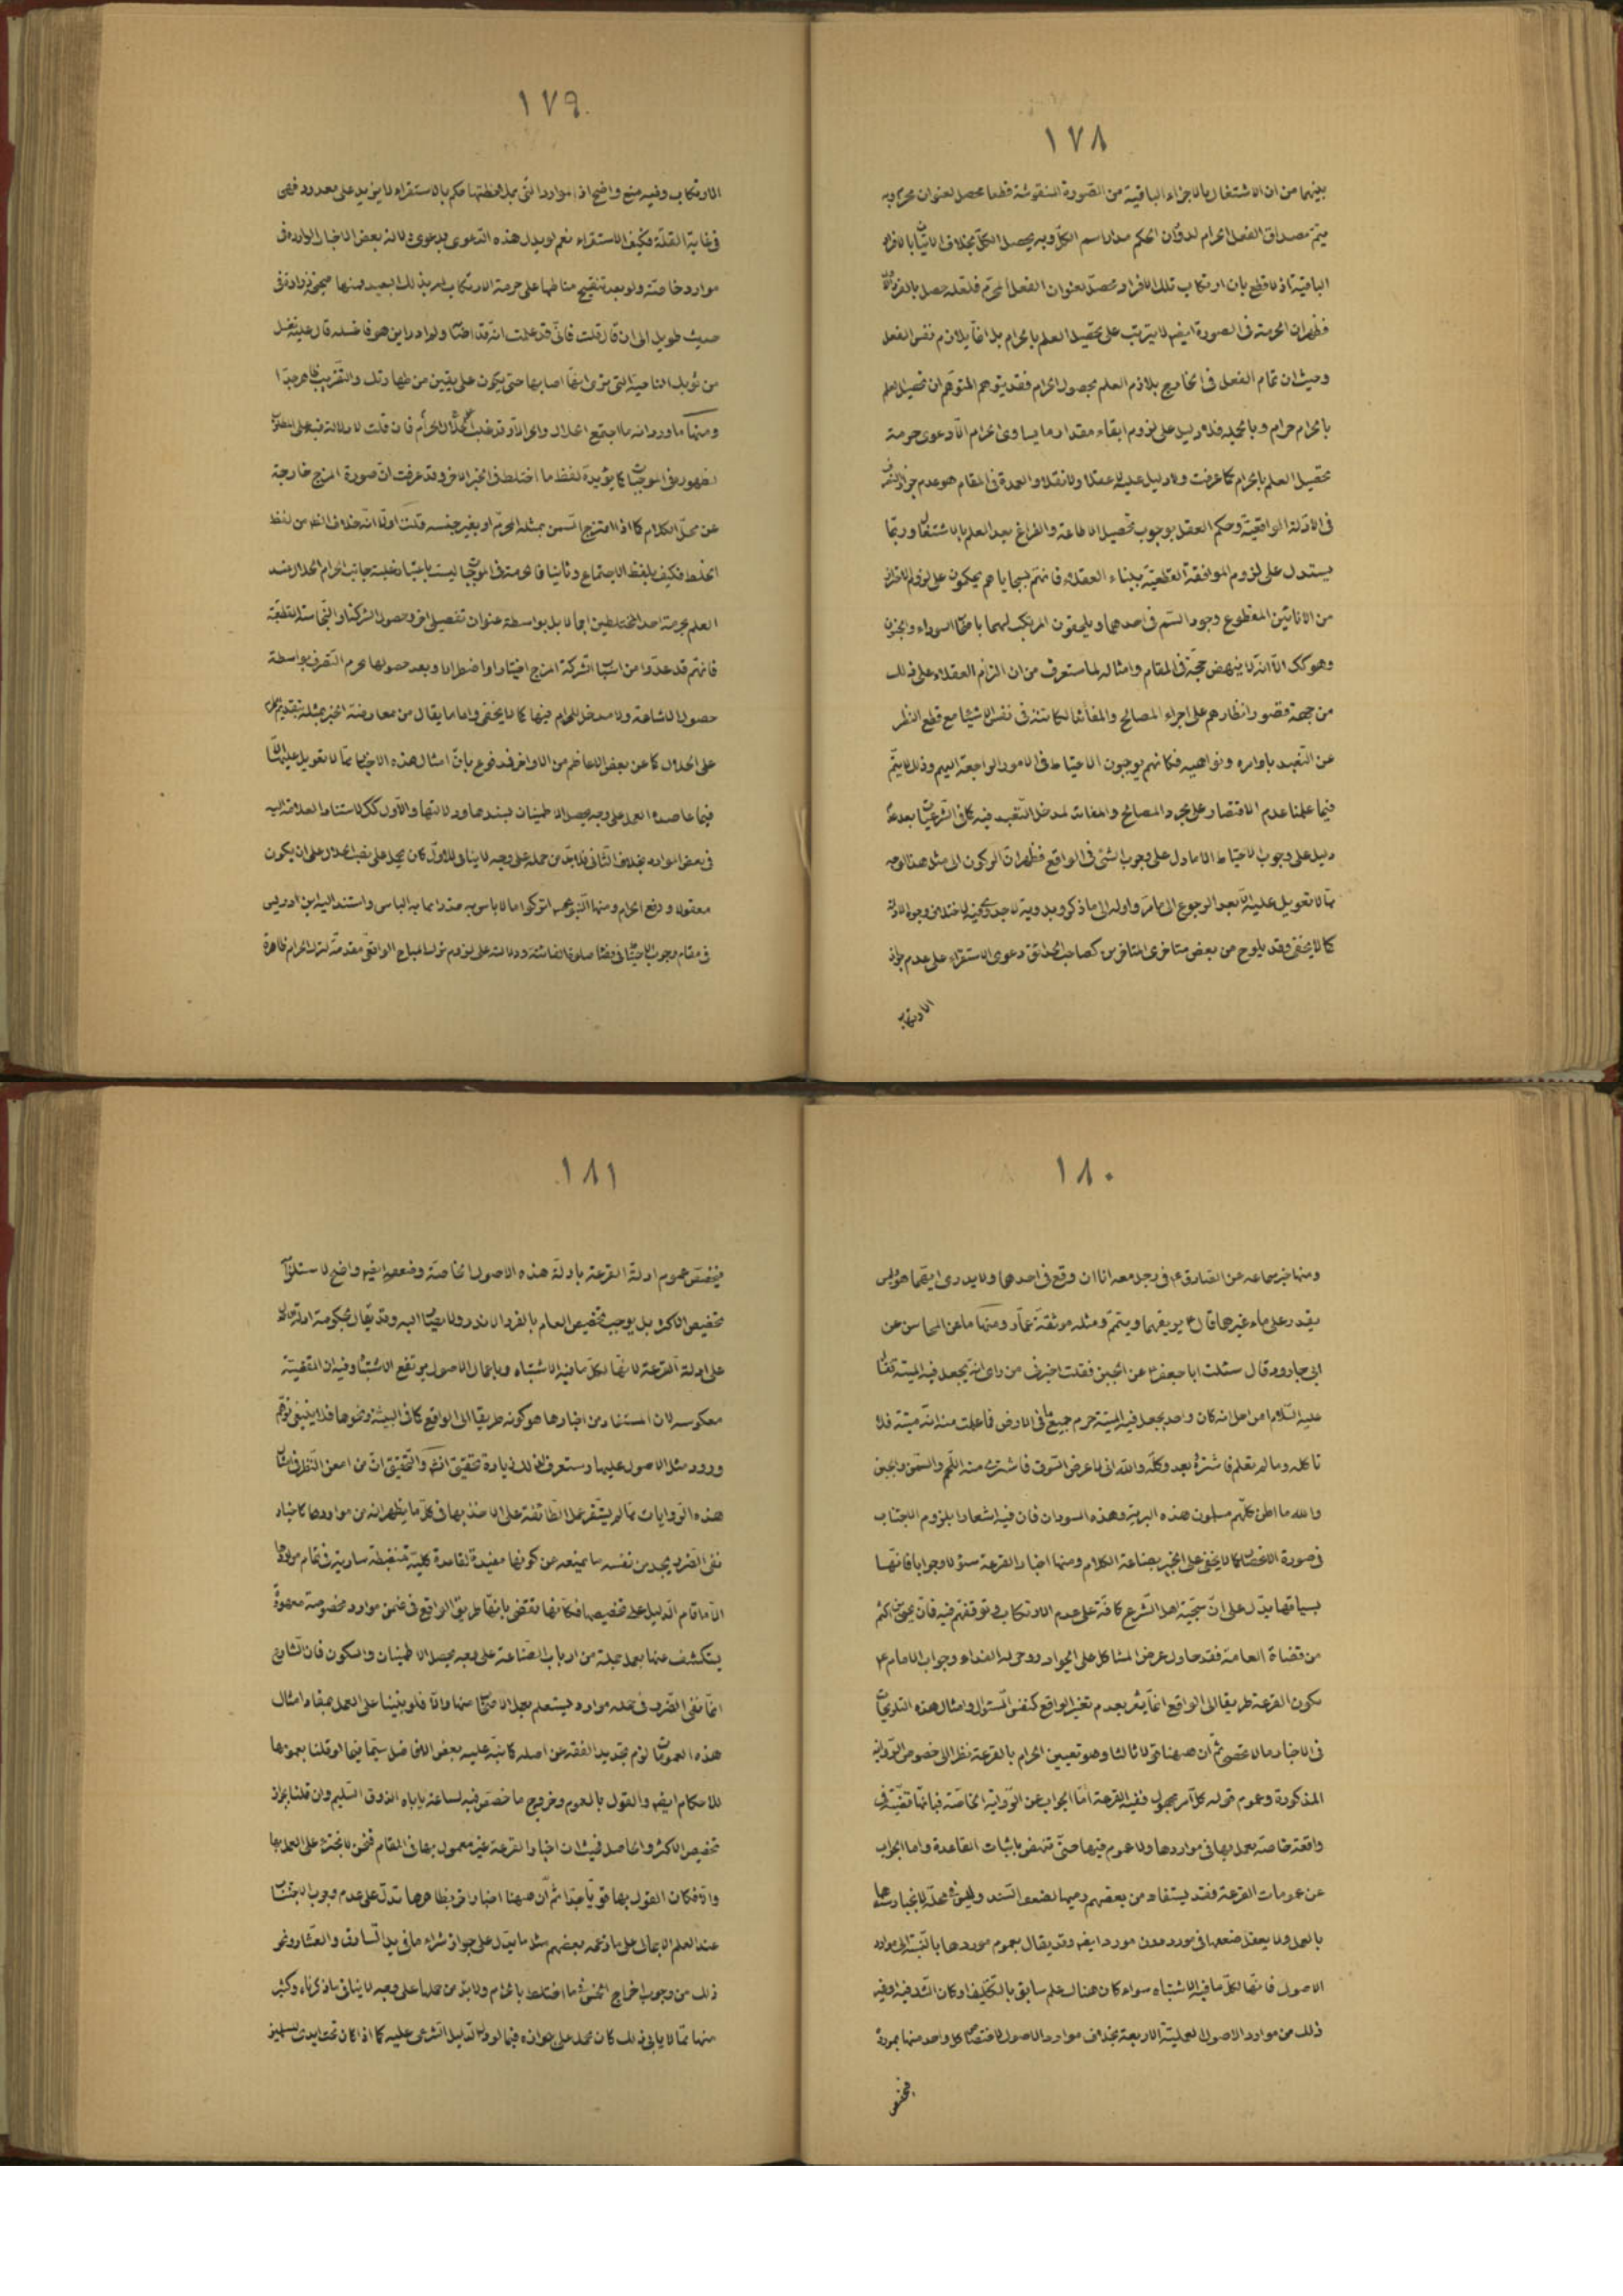 ١٧٨
بينهما من ان الاشتغال بالاجزاء الباقية من الصورة المنقوشة قطعا محصل لعنوان محرم وبه
يتم مصداق الفعل الحرام لدوران الحكم مدار اسم الكل وبه يحصل الكل بخلاف الاتيان بالافراد
الباقية اذ لا قطع بان ارتكاب تلك الافراد محصل بعنوان الفعل المحرم فلعله حصل بالفرد
فظهر ان الحرمة فى الصورة ايضا لا يترتب على تحصيل العلم بالحرام بل انما يلازم نفس الفعل
وحيث ان تمام الفعل فى الخارج يلازم العلم بحصول الحرام فقد يتوهم المتوهم ان تحصيل العلم
بالحرام حرام وبالجملة فلا دليل على لزوم ابقاء مقدار ما يساوى الحرام الا دعوى حرمة
تحصيل العلم بالحرام كما عرفت ولا دليل عليه لا عقلا ولا نقلا والعمدة فى المقام هو عدم جواز
فى الادلة الواقعية وحكم العقل بوجوب تحصيل الاطاعة والفراغ بعد العلم بالاشتغال وربما
يستدل على لزوم الموافقة القطعية ببناء العقلاء فانهم بسجاياهم يحكمون على لزوم الاحتراز
من الانائين المقطوع وجود السم فى احدهما ويلحقون المرتكب لهما باصحاب السوداء والجنون
وهو كك الا انه لا ينهض حجة فى المقام وامثاله لما ستعرف من ان الزام العقلاء على ذلك
من جهة قصور انظارهم على اجراء المصالح والمفاسد الكائنة فى نفس الاشياء مع قطع النظر
عن التعبد باوامره ونواهيه فكانهم يوجبون الاحتياط فى الامور الراجعة اليهم وذلك لا يتم
فيما علمنا عدم الاقتصار على مجرد المصالح والمفاسد لمدخل التعبد فيه كما فى الشرعيات بعد عدم
دليل على وجوب الاحتياط الا ما دل على وجوب الشئ فى الواقع فظهر ان الركون الى مثل هذا الوجه
مما لا تعويل عليه الا بعد الرجوع الى ما مر واوله الى ما ذكر وبدونه لا جدوى فيه لاختلاف وجوه الادلة
كما لا يخفى وقد يلوح من بعض متاخرى المتاخرين كصاحب الحدائق دعوى الاستقراء على عدم جواز
الارتكاب
١٧٩
الارتكاب وفيه منع واضح اذ الموارد التى بملاحظتها حكم بالاستقراء لا يزيد على معدود فهى
فى غاية القلة فكيف الاستقراء نعم لو بدل هذه الدعوى بدعوى دلالة بعض الاخبار الواردة فى
موارد خاصة ولو بعد تنقيح مناطها على حرمة الارتكاب لم يذ لك البعيد فمنها صحيحة زرارة فى
حديث طويل الى ان قال قلت فانى قد علمت انه قد اصابه ولم ادر اين هو فاغسله قال ع تغسل
من ثوبك الناحية التى ترى انها اصابها حتى تكون على يقين من طهارتك والتقريب ظاهر جدا
ومنها ما ورد انه ما اجتمع الحلال والحرام الا وقد غلب الحرام الحلال فان قلت لا دلالة فيه على المطلوب
لظهوره فى الموجبات كما يؤيده لفظ ما اختلط فى الخبر الاخر وقد عرفت ان صورة المزج خارجة
عن محل الكلام كما اذا امتزج السمن بمثله المحرم او بغير جنسه قلت اولا انه خلاف الظ من لفظ
الخلط فكيف بلفظ الاجتماع وثانيا فالحرمة فى الموجبات ليست باعتبار غلبة جانب الحرام الحلال عند
العلم بحرمة احد المختلطين اجمالا بل بواسطة عنوان تفصيلى اخر وحصول الشركة والنجاسة القطعية
فانهم قد عدوا من اسباب الشركة المزج اختيارا واضطرارا وبعد حصولها يحرم التصرف بواسطة
حصول الاشاعة ولا مدخل للحرام فيها كما لا يخفى واما ما يقال من معارضة الخبر بمثله بتقديم الحرام
على الحلال كما عن بعض الاعاظم من الاواخر فمدفوع بان امثال هذه الاخبار مما لا تعويل عليها الا
فيما عاضده العمل على وجه يحصل الاطمينان بسندها ودلالتها والاول كك لاستناد العلامة اليه
فى بعض الموارد بخلاف الثانى فلا بد من حمله على وجه لا ينافى الاول كان يحمل على غلب الحلال على ان يكون
معقولا ورفع الحرام ومنها النبوى ص اتركوا ما لا باس به حذرا مما به الباس واستند اليه ابن ادريس
فى مقام وجوب الاحتياط فى قضاء صلوة الفائتة ودلالته على لزوم ترك المباح الواقعى مقدمة لترك الحرام ظاهرة
١٨٠
ومنها خبر سماعه عن الصادق ع فى رجل معه اناان وقع فى احدهما ولا يدرى ايهما هو وليس
يقدر على ماء غيرها قال ع يريقهما ويتيمم ومثله موثقة عمار ومنها ما عن المحاسن عن
ابى جارود قال سئلت ابا جعفر ع عن الجبن فقلت اخبرنى من راى انه يجعل فيه الميتة فقال
عليه السلام امن اجل انه كان واحد يجعل فيه الميتة حرم جميع ما فى الارض فما علمت منه انه ميتة فلا
تاكله وما لم تعلم فاشتره وبعه وكله والله انى لاعرض السوق فاشترى منه اللحم والسمن والجبن
والله ما اظن كلهم مسلمون هذه البربرية وهذه السودان فان فيه اشعارا بلزوم الاجتناب
فى صورة الانحصار كما لا يخفى على الخبير بصناعة الكلام ومنها اخبار القرعة سؤالا وجوابا فانها
بسياقها يدل على ان سجية اهل الشرع كافة على عدم الارتكاب وتوقفهم فيه فان يحيى بن اكثم
من قضاة العامة فقد حاول عرض المشاكل على الجواد روحى له الفداء وجواب الامام ع
بكون القرعة طريقا الى الواقع انما يثمر بعدم تغير الواقع كنفس السئوال وامثال هذه التلويحات
فى الاخبار مما لا تحصى ثم ان هيهنا قولا ثالثا وهو تعيين الحرام بالقرعة نظرا الى خصوص الرواية
المذكورة وعموم قوله كل امر مجهول ففيه القرعة اما الجواب عن الرواية الخاصة فبانها قضية فى
واقعة خاصة يعمل بها فى مواردها ولا عموم فيها حتى تنهض باثبات القاعدة واما الجواب
عن عمومات القرعة فقد يستفاد من بعضهم رميها بضعف السند وليس فى محله لانجبار سندها
بالعمل ولا يعقل ضعفها فى مورد دون مورد ايضا وقد يقال بعموم موردها بالنسبة الى موارد
الاصول فانها لكل ما فيه الاشتباه سواء كان هناك علم سابق بالتكليف او كان الشك فيه او فيه
ذلك من موارد الاصول العملية الاربعة بخلاف موارد الاصول لاختصاص كل واحد منها بمورد
فيخصص
١٨١
فيخصص عموم ادلة القرعة بادلة هذه الاصول الخاصة وضعفه ايضا واضح لاستلزامه
تخصيص الاكثر بل يوجب تخصيص العام بالفرد النادر ولا يصار اليه وقد يقال بحكومة ادلة
على ادلة القرعة لانها لكل ما فيه الاشتباه وباعمال الاصول يرتفع الاشتباه وفيه ان القضية
معكوسه لان المستفاد من اخبارها هو كونه طريقا الى الواقع كما فى البينة ونحوها فلا ينبغى توهم
ورود مثل الاصول عليها وستعرف لذلك زيادة تحقيق انشه والتحقيق ان من امعن النظر فى امثال
هذه الروايات مما لم يستقر عمل الطائفة على الاخذ بها فى كل ما يظهر انه من مواردها كاخبار
نفى الضرر يجد من نفسه ما يمنعه عن كونها مفيدة لقاعدة كلية منضبطة سارية فى تمام مواردها
الا ما قام الدليل على تخصيصها فكانها تقتضى بانها طريق الواقع فى ضمن موارد مخصوصة معهودة
يستكشف عنها بعمل جملة من ارباب الصناعة على وجه يحصل الاطمينان والسكون فان الشارع
انما نفى الضرر فى جملة موارد يستعلم بعمل الاصحاب منها والا فلو بنينا على العمل بمفاد امثال
هذه العمومات لزم تجديد الفقه عن اصله كما نبه عليه بعض الافاضل سيما فيما لو قلنا بعمومها
للاحكام ايضا والقول بالعموم وخروج ما خصص فيه لساعة ياباه الذوق السليم وان قلنا بجواز
تخصيص الاكثر والحاصل فحيث ان اخبار القرعة غير معمول بها فى المقام فنحن لا نجترء على العمل بها
والا فكان القول بها قويا جدا ثم ان هيهنا اخبار اخر بظاهرها تدل على عدم وجوب الاجتناب
عند العلم الاجمالى على ما زعمه بعضهم مثل ما يدل على جواز شراء ما فى يد السارق والعشار ونحو
ذلك من وجوب اخراج الخمس فى ما اختلط بالحرام ولا بد من حملها على وجه لا ينافى ما ذكرناه وكثير
منها مما لا يابى ذلك كان يحمل على جوازه فيما لو دل الدليل الشرعى عليه كما اذا كان تحت ايدى المسلمين